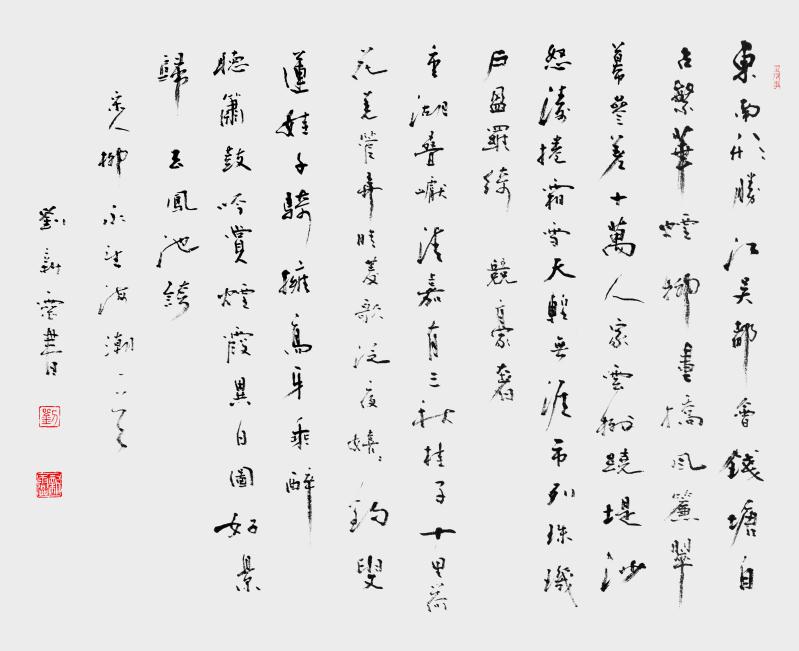 東南形勝江吴都會錢塘自
古繁華煙柳畫橋風簾翠
幕參差十萬人家雲樹繞堤沙
怒濤捲霜雪天塹無涯市列珠璣
戶盈羅綺競豪奢
重湖疊巘清嘉有三秋桂子十里荷
花羌管弄晴菱歌泛夜嬉〻釣叟
蓮娃千騎擁高牙乘醉
聽簫鼓吟賞煙霞異日圖好景
歸去鳳池誇
宋人柳永望海潮一首
劉新雲書
劉